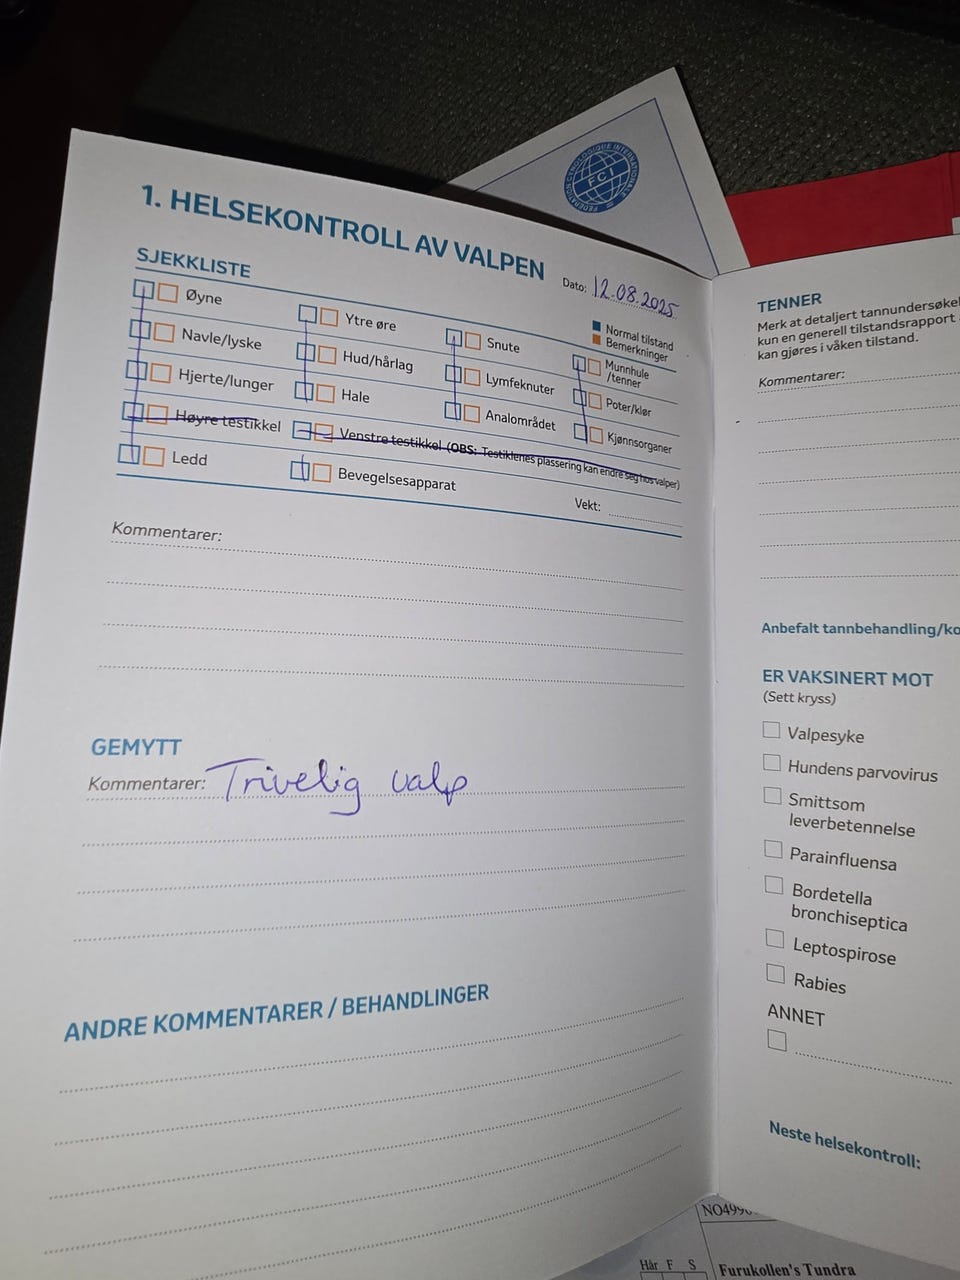 FEDERATION CYNOLOGIQUE INTERNATIONALE
FCI
1. HELSEKONTROLL AV VALPEN
SJEKKLISTE
Dato: 12.08.2025
Normal tilstand
Bemerkninger
Øyne
Ytre øre
Snute
Munnhule /tenner
Navle/lyske
Hud/hårlag
Lymfeknuter
Poter/klør
Hjerte/lunger
Hale
Analområdet
Kjønnsorganer
Høyre testikkel
Venstre testikkel (OBS: Testiklenes plassering kan endre seg hos valper)
Ledd
Bevegelsesapparat
Vekt:
Kommentarer:
GEMYTT
Kommentarer: Trivelig valp
ANDRE KOMMENTARER / BEHANDLINGER
TENNER
Merk at detaljert tannundersøkel
kun en generell tilstandsrapport
kan gjøres i våken tilstand.
Kommentarer:
Anbefalt tannbehandling/ko
ER VAKSINERT MOT
(Sett kryss)
Valpesyke
Hundens parvovirus
Smittsom
leverbetennelse
Parainfluensa
Bordetella
bronchiseptica
Leptospirose
Rabies
ANNET
Neste helsekontroll:
Hår F S
Furukollen's Tundra